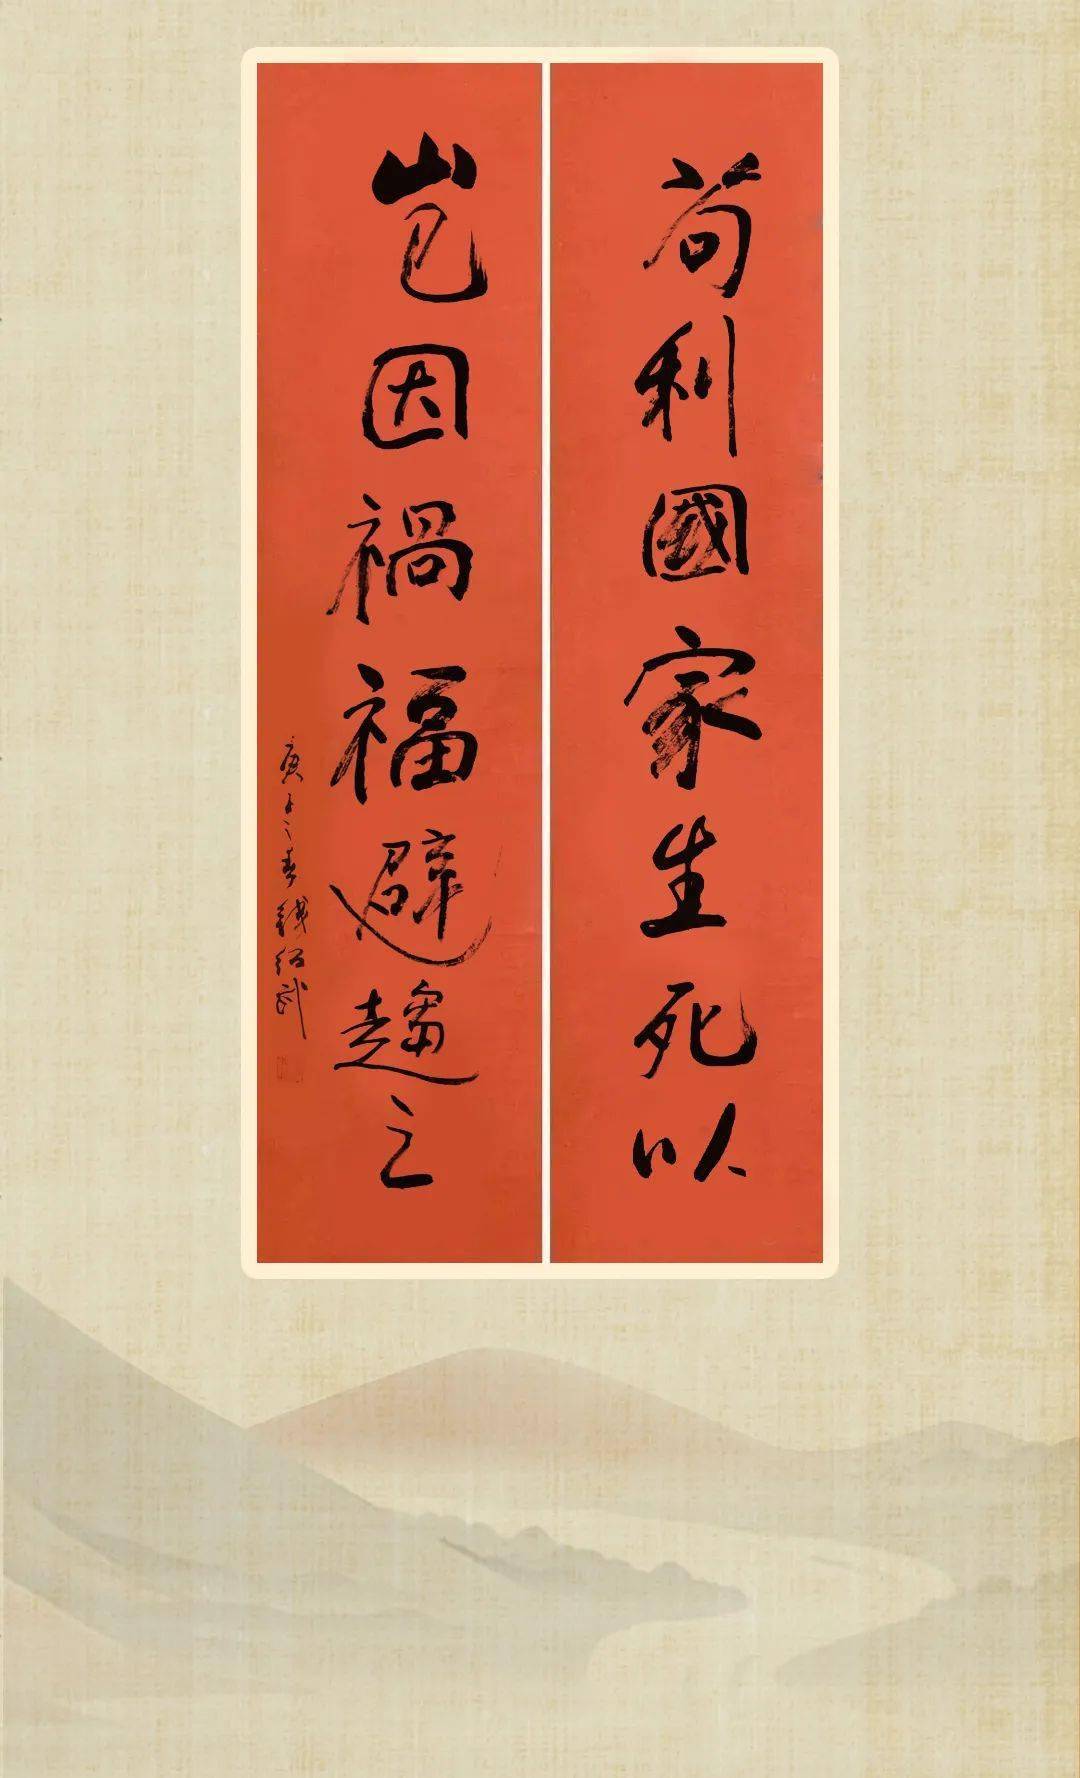 苟利國家生死以
岂因禍福避趨之
庚子春錢紹武